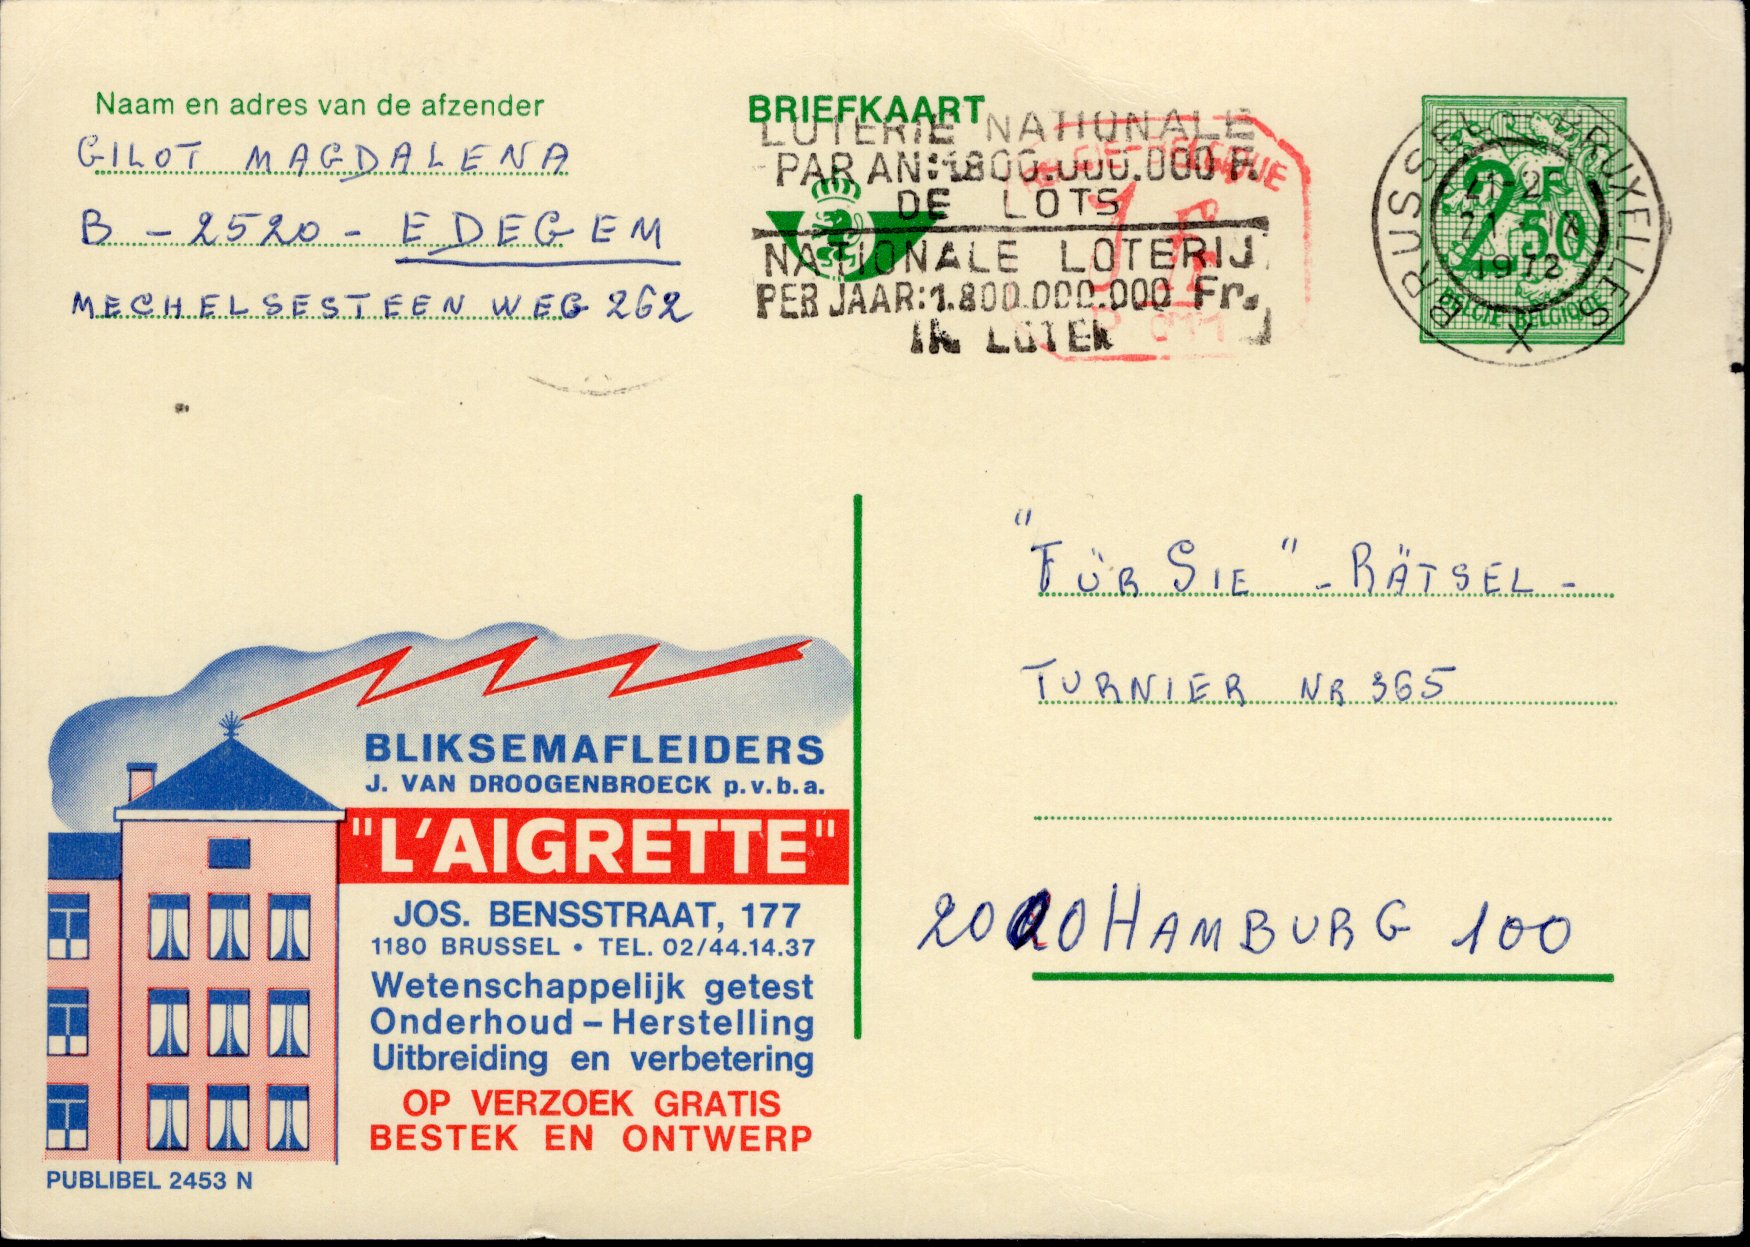 Naam en adres van de afzender
GILOT MAGDALENA
B - 2520 - EDEGEM
MECHELSESTEENWEG 262
BRIEFKAART
LOTERIE NATIONALE
PAR AN: 1.800.000.000 F.
DE LOTS
NATIONALE LOTERIJ
PER JAAR: 1.800.000.000 Fr.
IN LOTEN
BELGIE-BELGIQUE
1 F
BRUSSEL X BRUXELLES X
21 IX
1972
2F50
BELGIE-BELGIQUE
"FÜR SIE" - RÄTSEL -
TURNIER NR 365
2000 HAMBURG 100
BLIKSEMAFLEIDERS
J. VAN DROOGENBROECK p.v.b.a.
"L'AIGRETTE"
JOS. BENSSTRAAT, 177
1180 BRUSSEL • TEL. 02/44.14.37
Wetenschappelijk getest
Onderhoud – Herstelling
Uitbreiding en verbetering
OP VERZOEK GRATIS
BESTEK EN ONTWERP
PUBLIBEL 2453 N